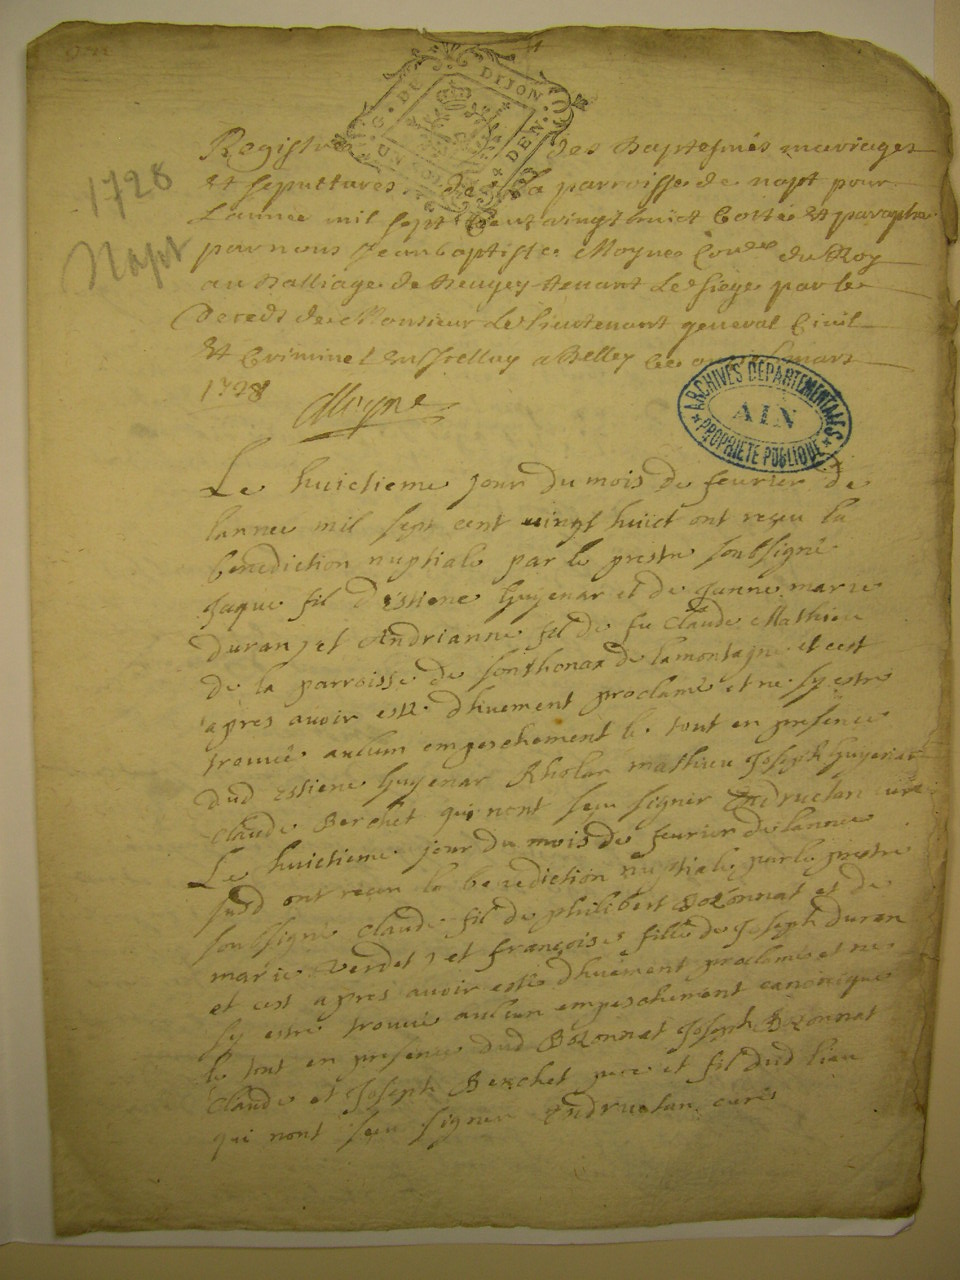 G. DE DIJON
UN SOL
DEN.
1728
Napt
Registre des Baptesmes mariages
et sepultures de la parroisse de napt pour
Lannee mil sept cent vingt huict Cottée et paraphé
par nous Jean baptiste Moyne Con.er du Roy
au Balliage de Beugey tenant Le siege par le
Deceds de Monsieur Le lieutenant general Civil
et Criminel a Belley ce mars
1728 Moyne
ARCHIVES DEPARTEMENTALES
AIN
PROPRIETE PUBLIQUE
Le huictieme jour du mois de feurier de
lannee mil sept cent uingt huict ont reçeu la
benediction nuptiale par le prestre soubsigné
Jaque fil d'estiene Guyenar et de Janne marie
duran, et Andrianne fil de fu Claude Mathieu
de la parroisse de sonthonax de lamontagne et cest
apres auoir esté dhuement proclamé et ne sy estre
trouué aulcun empeschement le tout en presence
dud estiene Guyenar mathieu Joseph Guyenar
claude Berchet qui nont sceu signer curé
Le huictieme jour du mois de feurier de lannee
susd ont reçeu la benediction nuptiale par le prestre
soubsigné Claude fil de philibert Bozonnat et de
marie Verdet, et françoise fille de Joseph duran
et cest apres auoir esté dhuement proclamé et ne
sy estre trouué aulcun empeschement canonique
le tout en presence dud Bozonnat Joseph Bozonnat
claude et Joseph Berchet pere et fil dud lieu
qui nont sceu signer curé